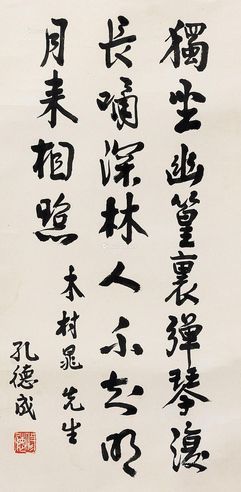 獨坐幽篁裏彈琴復
長嘯深林人不知明
月来相照
木村先生
孔德成